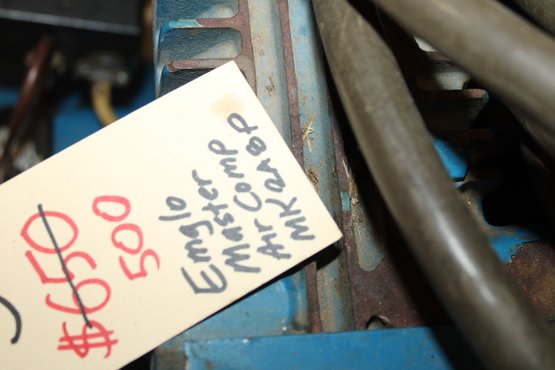 $650 500
Emglo
Master
Air Comp